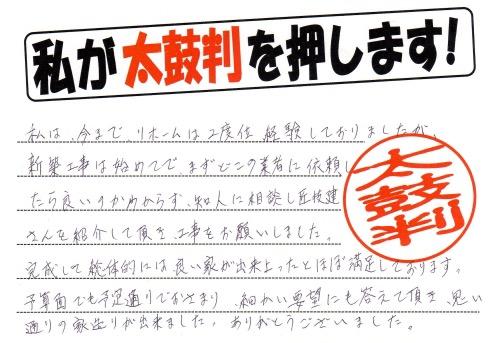 私が太鼓判を押します!
私は、今まで、リホームは2度位 経験しておりましたが、
新築工事は始めてで まずどこの業者に依頼し
たら良いのかわからず、知人に相談し匠技建
さんを紹介して頂き、工事をお願いしました。
完成して総体的には良い家が出来上ったとほぼ満足しております。
予算面でも予定通りでおさまり、細かい要望にも答えて頂き、思い
通りの家造りが出来ました。ありがとうございました。
太鼓判